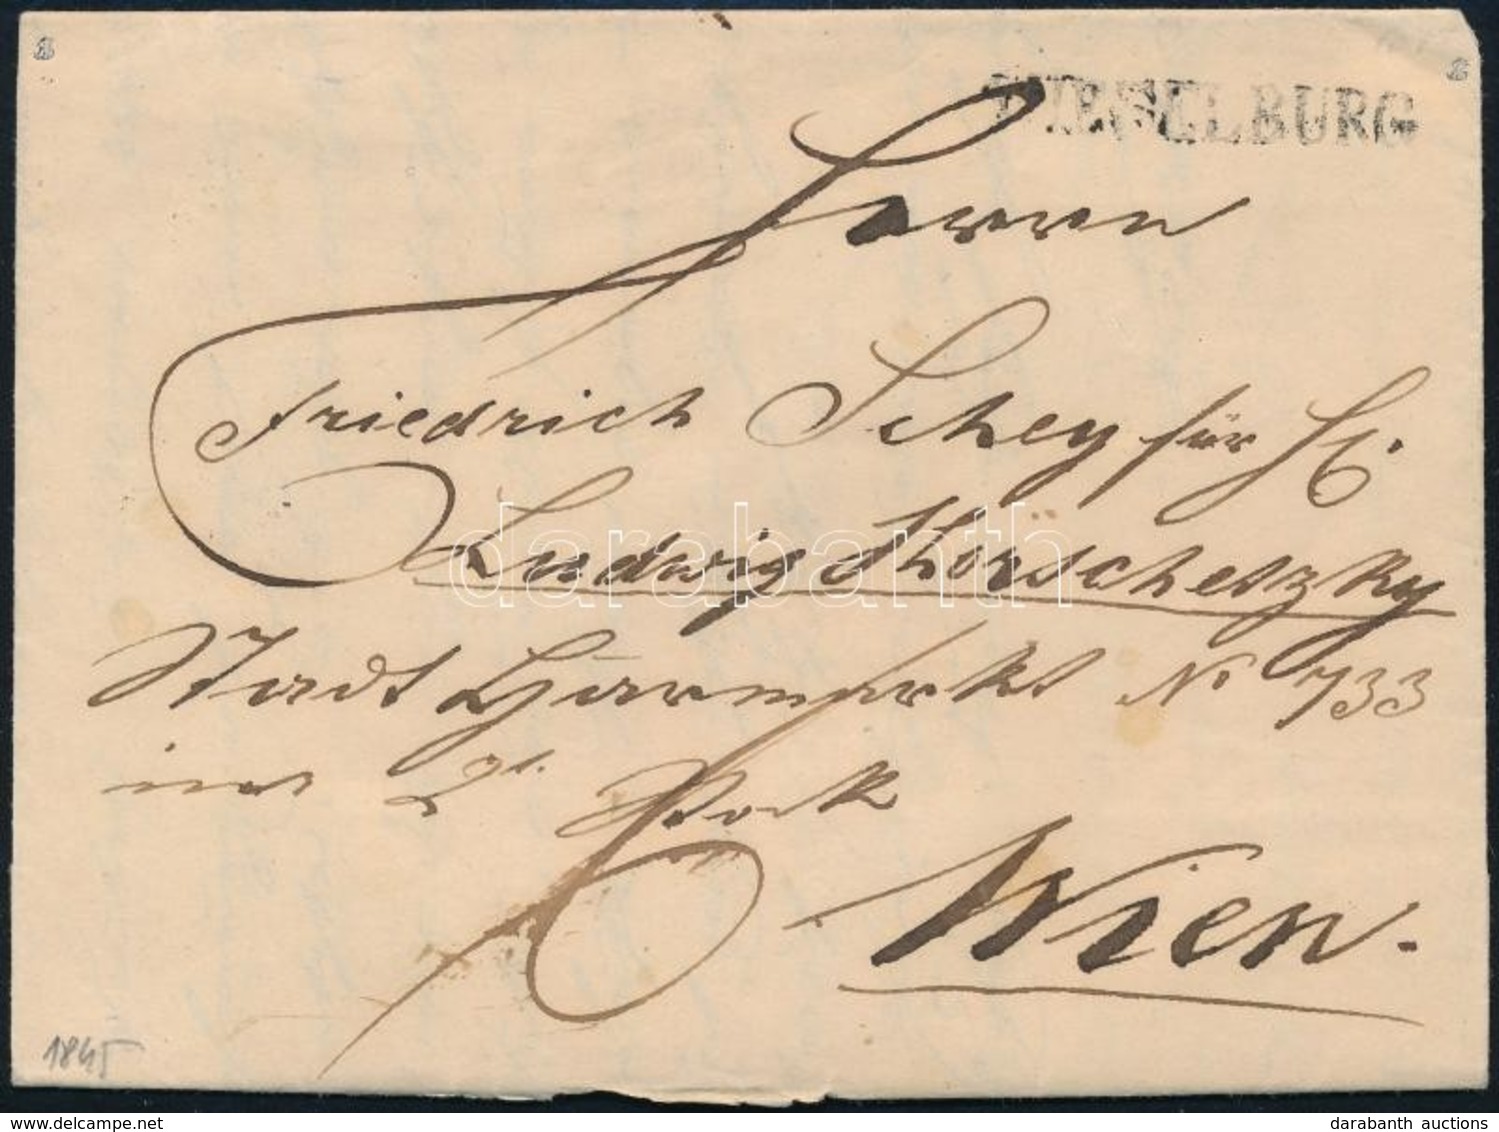 WIESELBURG
Herrn
Friedrich Schey für H.
Ludwig Körschetzky
Stadt Haarmarkt No 733
im 2t. Stock
Wien.
1845
darabanth
delcampe.net
darabanth auctions